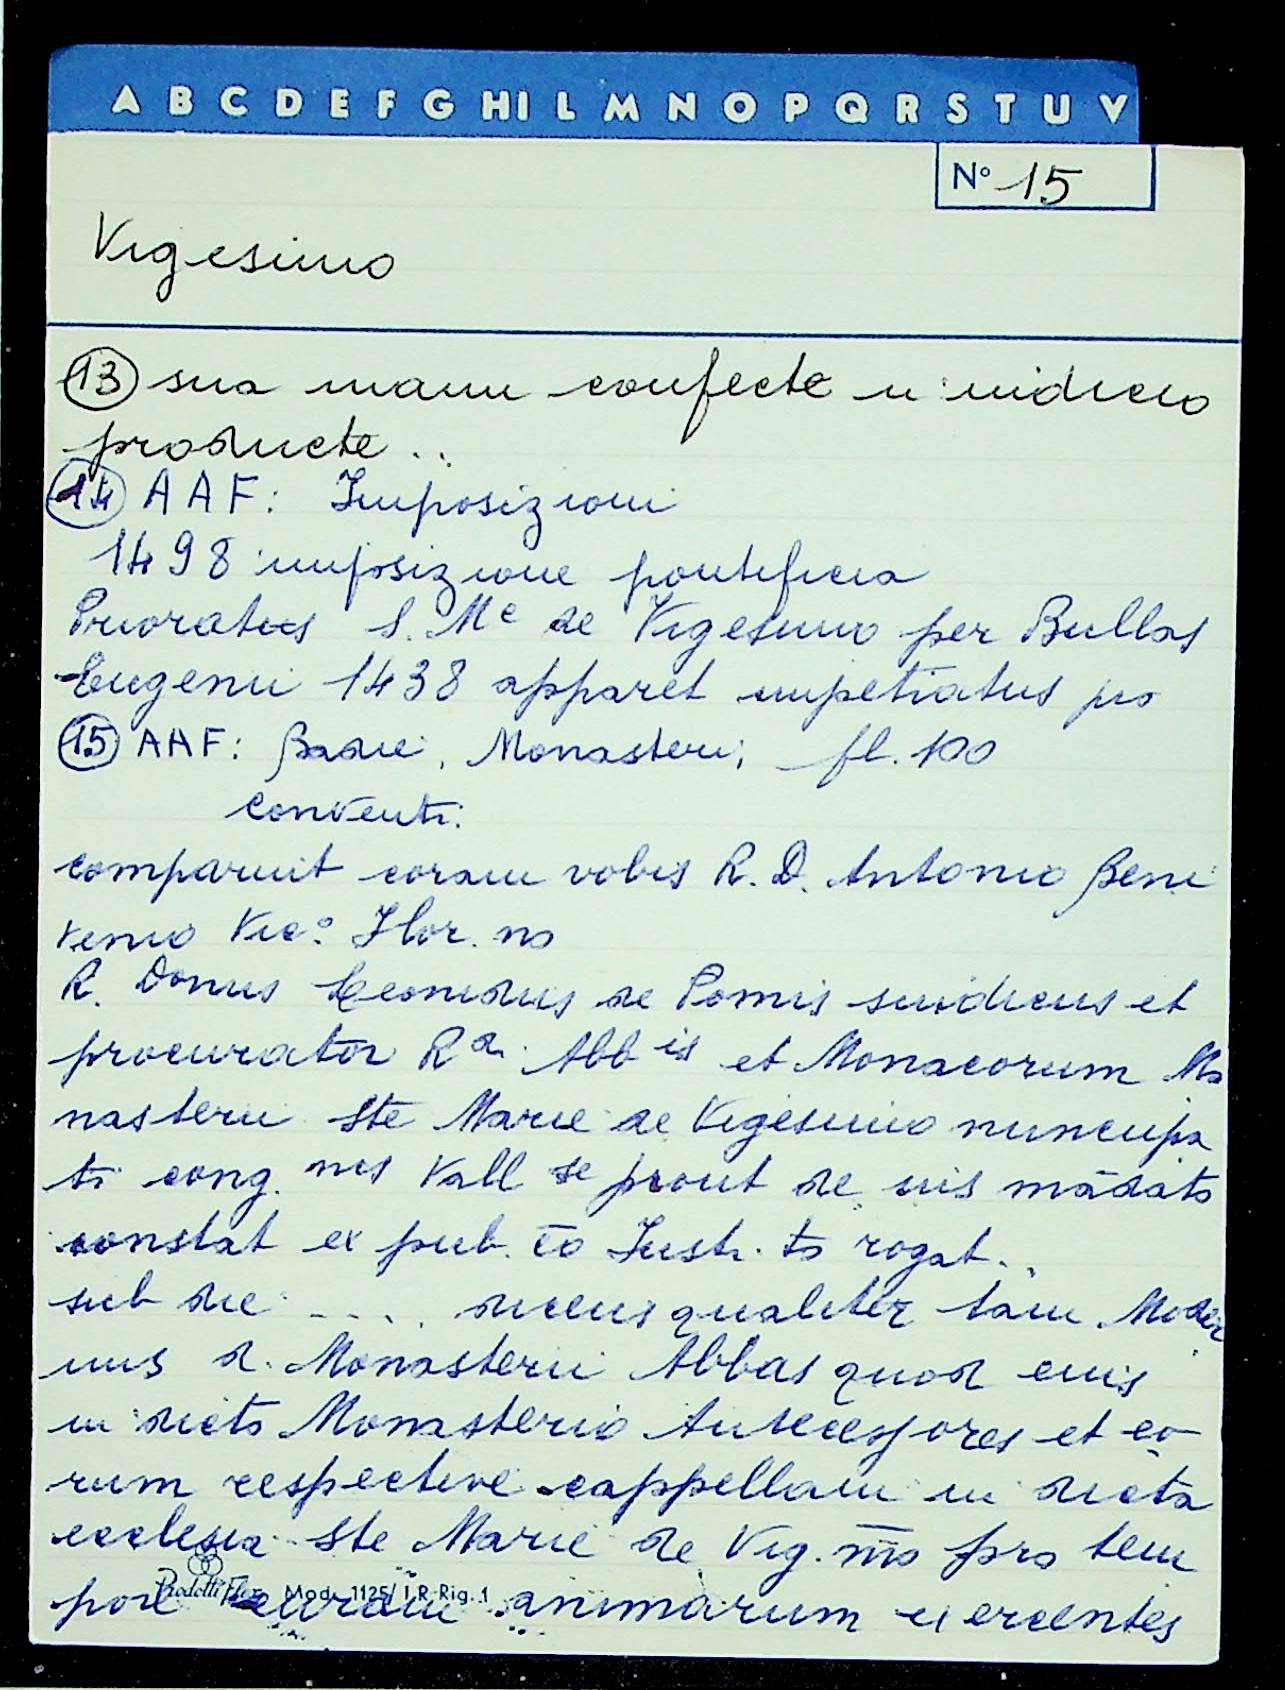 A B C D E F G HI L M N O P Q R S T U V
N° 15
Vigesimo
13 sua manu confecte in iudicio
producte ..
14 AAF: Imposizioni
1498 imposizione pontificia
Prioratus S. Me de Vigesimo per Bullas
Eugenii 1438 apparet impetratus pro
15 AAF: Badie, Monasteri, fl. 100
conventi:
comparuit coram vobis R. D. Antonio Beni
venio Vic° Flor. no
R. Donus Leonidus de Pomis sindicus et
procurator Rdi Abb is et Monacorum Mo
nasterii Ste Marie de Vigesimo nuncupa
ti cong. nis Vall se prout de eius mādato
constat ex pub. co Instr. to rogat..
sub die .... dicens qualiter tam Moder
nus d. Monasterii Abbas quod eius
in dicto Monasterio Antecessores et eo
rum respective cappellani in dicta
ecclesia Ste Marie de Vig. mo pro tem
pore curam animarum exercentes
Prodotti Flex Mod. 1125/ I.R-Rig. 1